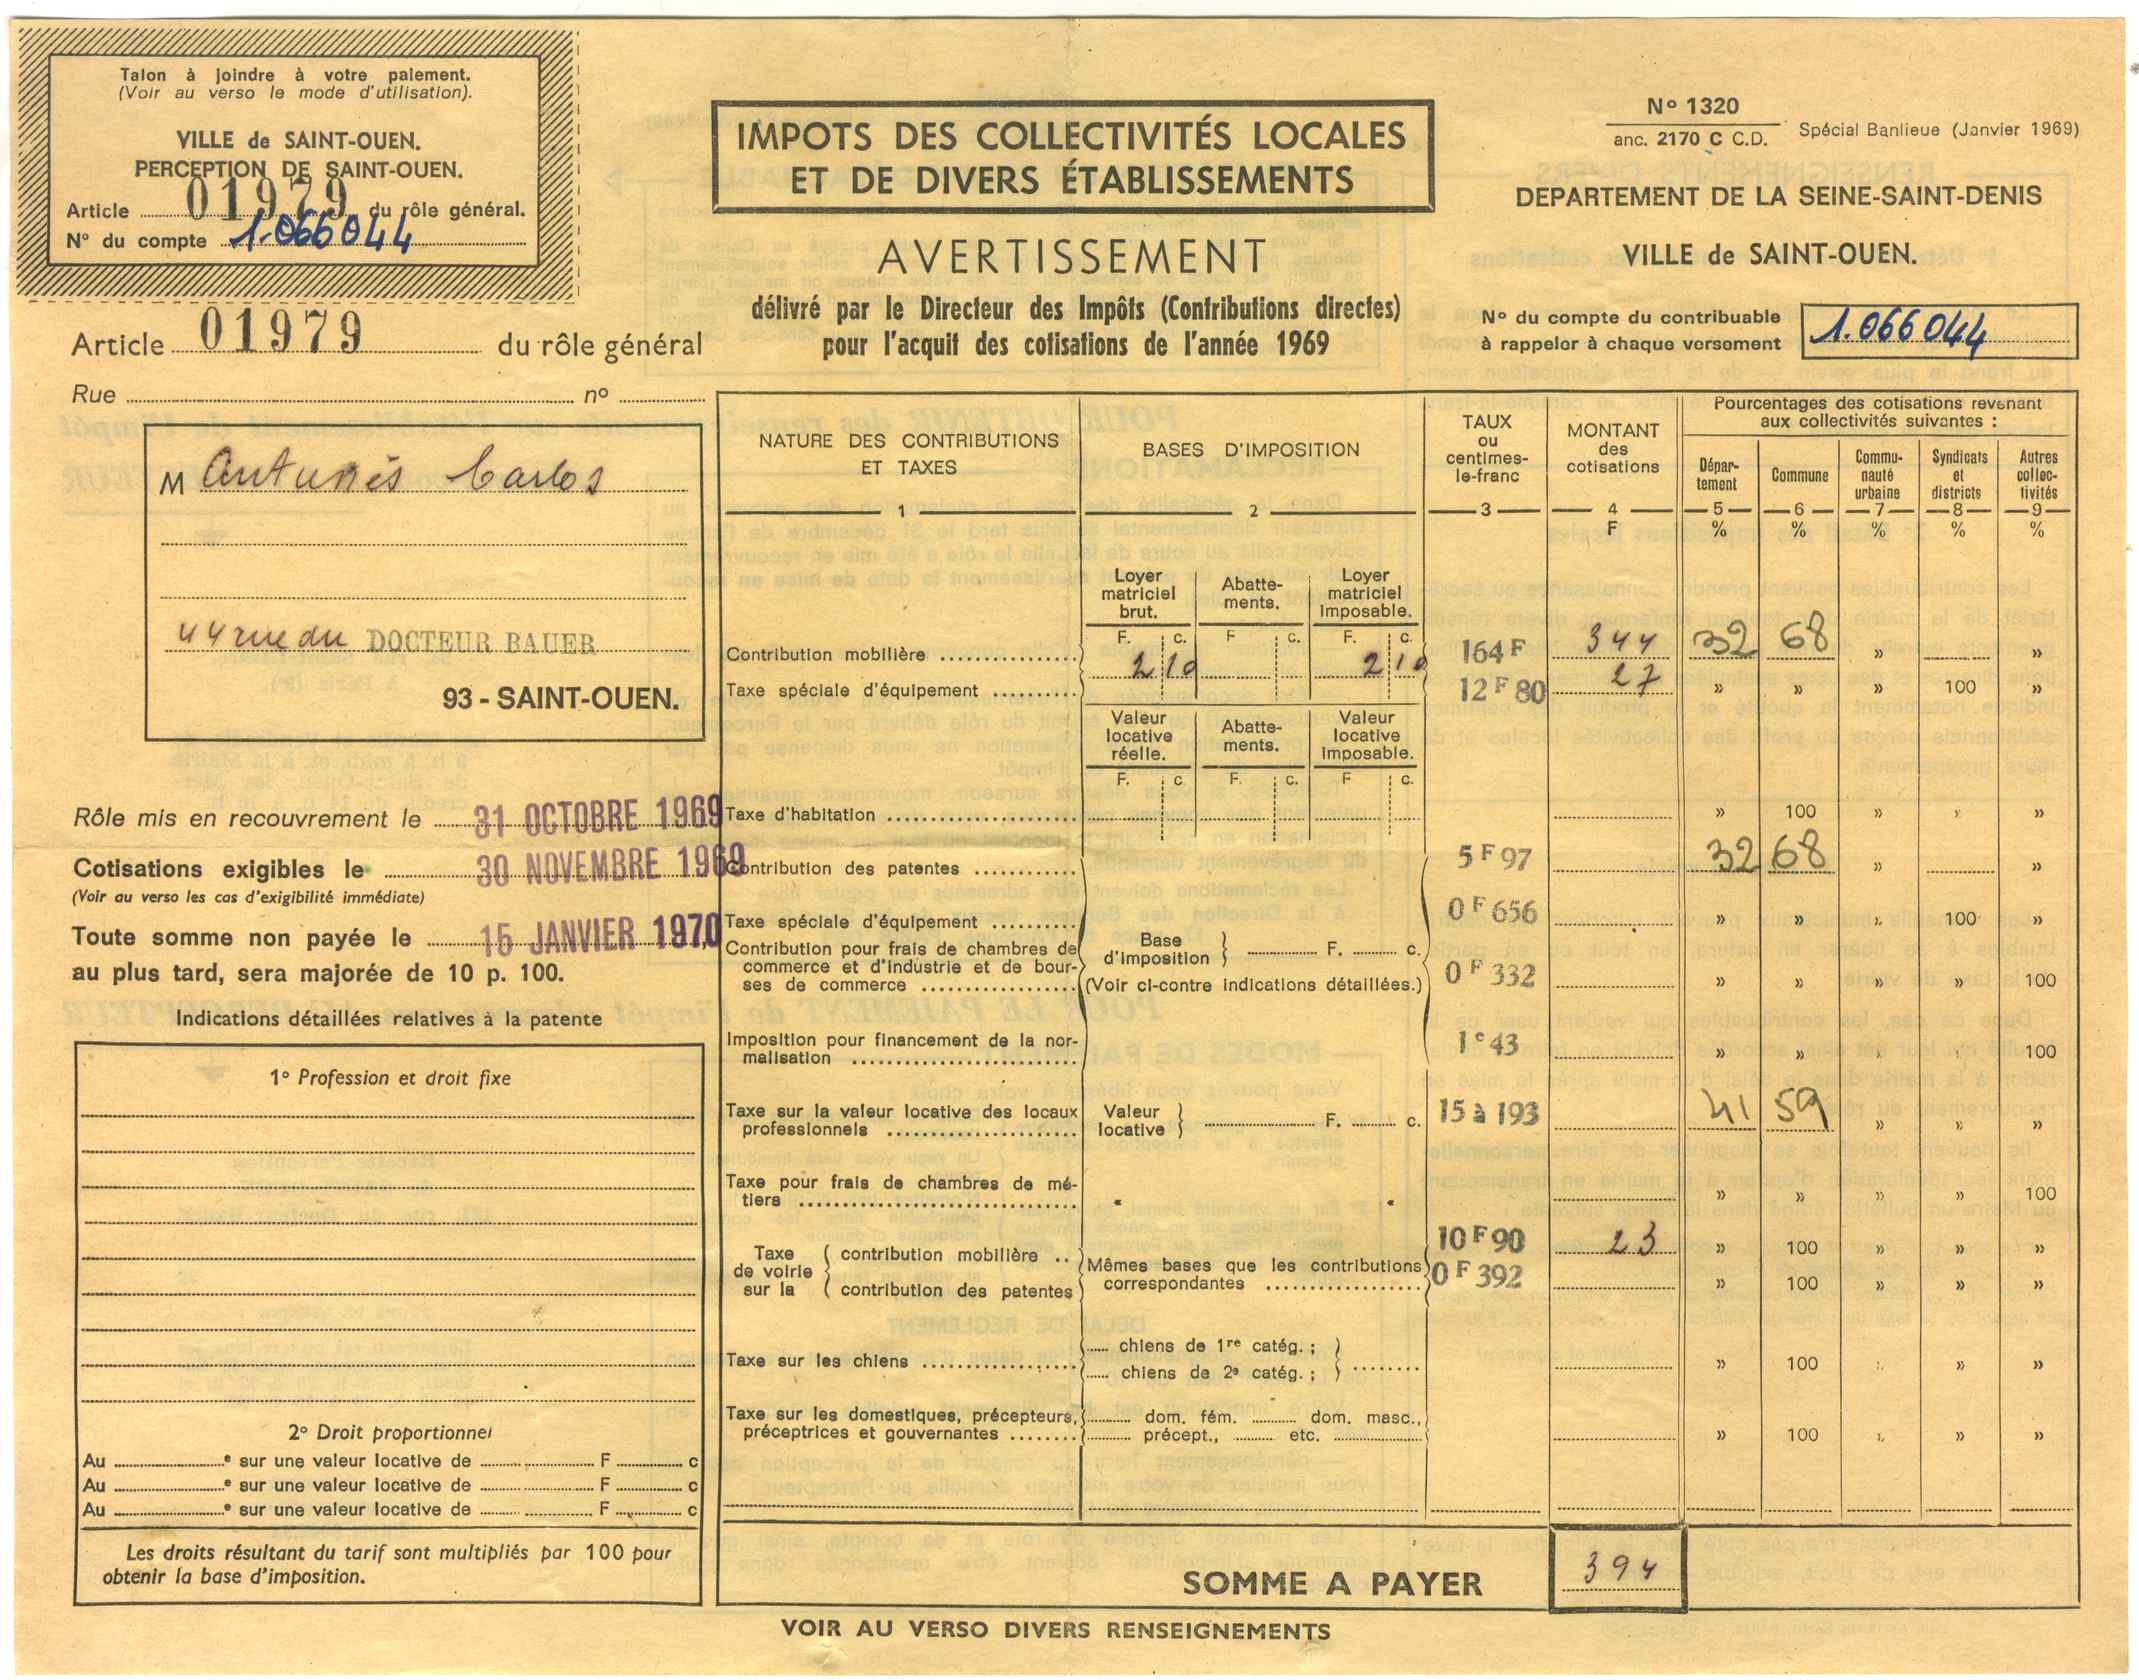 Talon à joindre à votre paiement.
(Voir au verso le mode d'utilisation).
VILLE de SAINT-OUEN.
PERCEPTION DE SAINT-OUEN.
Article 01979 du rôle général.
N° du compte 1.066044
Article 01979 du rôle général
Rue n°
M Antunès Carlos
44 rue du DOCTEUR BAUER
93 - SAINT-OUEN.
Rôle mis en recouvrement le 31 OCTOBRE 1969
Cotisations exigibles le 30 NOVEMBRE 1969
(Voir au verso les cas d'exigibilité immédiate)
Toute somme non payée le 15 JANVIER 1970
au plus tard, sera majorée de 10 p. 100.
Indications détaillées relatives à la patente
1° Profession et droit fixe
2° Droit proportionnel
Au e sur une valeur locative de F c
Au e sur une valeur locative de F c
Au e sur une valeur locative de F c
Les droits résultant du tarif sont multipliés par 100 pour
obtenir la base d'imposition.
IMPOTS DES COLLECTIVITÉS LOCALES
ET DE DIVERS ÉTABLISSEMENTS
AVERTISSEMENT
délivré par le Directeur des Impôts (Contributions directes)
pour l'acquit des cotisations de l'année 1969
N° 1320
anc. 2170 C C.D.
Spécial Banlieue (Janvier 1969)
DEPARTEMENT DE LA SEINE-SAINT-DENIS
VILLE de SAINT-OUEN.
N° du compte du contribuable
à rappeler à chaque versement
1.066044
NATURE DES CONTRIBUTIONS
ET TAXES
1
BASES D'IMPOSITION
2
TAUX
ou
centimes-
le-franc
3
MONTANT
des
cotisations
4
F
Pourcentages des cotisations revenant
aux collectivités suivantes :
Dépar-
tement
5
%
Commune
6
%
Commu-
nauté
urbaine
7
%
Syndicats
et
districts
8
%
Autres
collec-
tivités
9
%
Loyer
matriciel
brut.
Abatte-
ments.
Loyer
matriciel
imposable.
F. c. F c. F. c.
Contribution mobilière 210 210 164 F 344 32 68 » »
Taxe spéciale d'équipement 12 F 80 27 » » » 100 »
Valeur
locative
réelle.
Abatte-
ments.
Valeur
locative
imposable.
F. c F. c. F c.
Taxe d'habitation » 100 » » »
Contribution des patentes 5 F 97 32 68 » »
Taxe spéciale d'équipement 0 F 656 » » » 100 »
Contribution pour frais de chambres de
commerce et d'industrie et de bour-
ses de commerce
Base
d'imposition } F. c.
(Voir ci-contre indications détaillées.)
0 F 332 » » » » 100
Imposition pour financement de la nor-
malisation 1 c 43 » » » » 100
Taxe sur la valeur locative des locaux
professionnels
Valeur
locative } F. c.
15 à 193 41 59 » » »
Taxe pour frais de chambres de mé-
tiers » » » » 100
Taxe
de voirie
sur la
contribution mobilière .. 10 F 90 23 » 100 » » »
contribution des patentes 0 F 392 » 100 » » »
Mêmes bases que les contributions
correspondantes
Taxe sur les chiens
chiens de 1re catég. ;
chiens de 2e catég. ;
» 100 » » »
Taxe sur les domestiques, précepteurs,
préceptrices et gouvernantes
dom. fém. dom. masc.,
précept., etc.
» 100 » » »
SOMME A PAYER 394
VOIR AU VERSO DIVERS RENSEIGNEMENTS